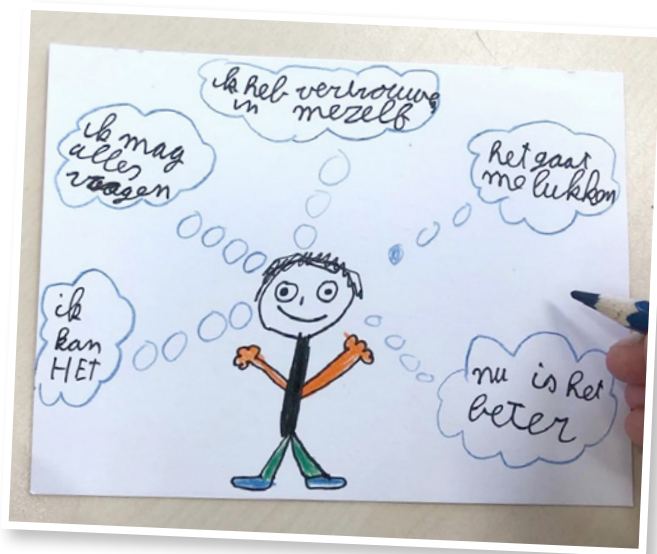 ik heb vertrouwe
in mezelf
ik mag
alles
vragen
het gaat
me lukken
ik
kan
HET
nu is het
beter